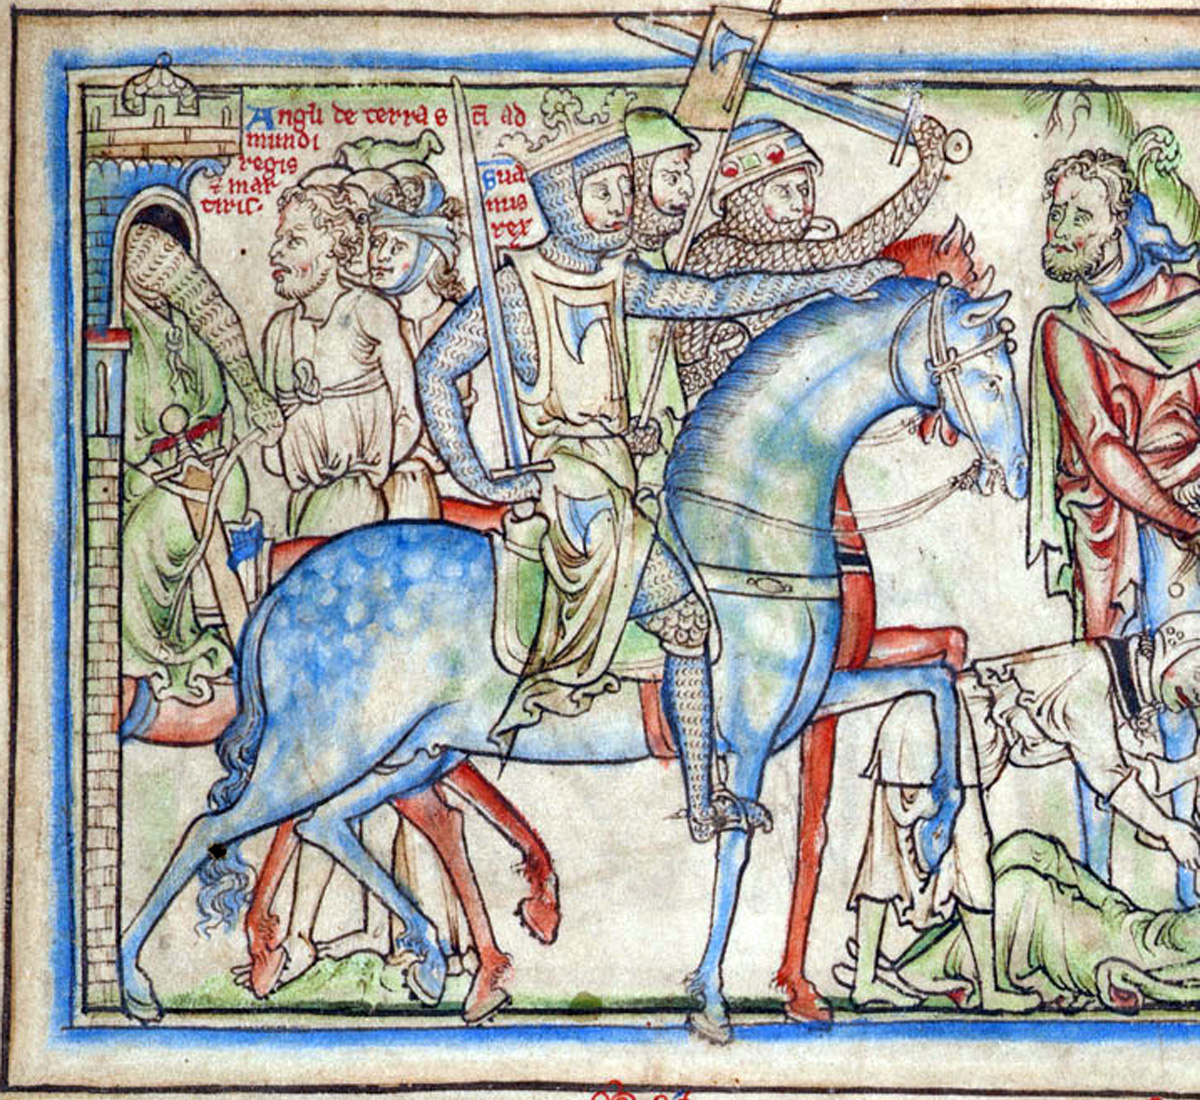 Angli de terra s cñ ad
mundi
regis
⁊ mar
tiris.
Sua
nus
rex